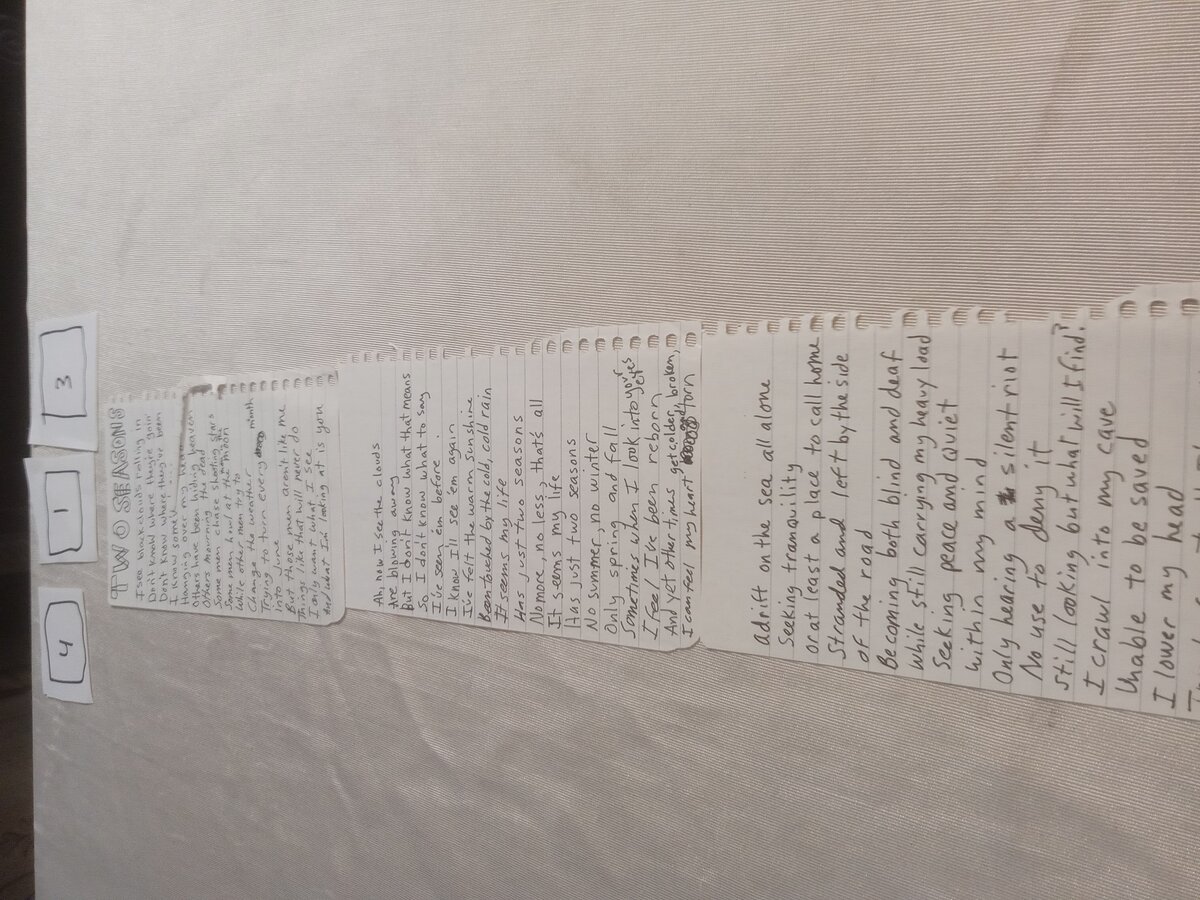 4 1 3
TWO SEASONS
I see black clouds rolling in
Don't know where they're goin'
Don't know where they've been
I know some
Hanging over my head
Others have been hiding heaven
Others mourning the dead
Some men chase shooting stars
Some men howl at the moon
While other men try to
change the weather
Trying to turn every month
into June
But those men aren't like me
Things like that will never do
I only want what I see
And what I'm looking at is you
Ah, now I see the clouds
Are blowing away
But I don't know what that means
So I don't know what to say
I've seen 'em before
I know I'll see 'em again
I've felt the warm sunshine
Been touched by the cold, cold rain
It seems my life
Has just two seasons
No more, no less, that's all
It seems my life
Has just two seasons
No summer, no winter
Only spring and fall
Sometimes when I look into your eyes
I feel I've been reborn
And yet other times get colder, broken,
I can feel my heart torn
adrift on the sea all alone
Seeking tranquility
or at least a place to call home
Stranded and left by the side
of the road
Becoming both blind and deaf
while still carrying my heavy load
Seeking peace and quiet
within my mind
Only hearing a silent riot
No use to deny it
still looking but what will I find?
I crawl into my cave
Unable to be saved
I lower my head